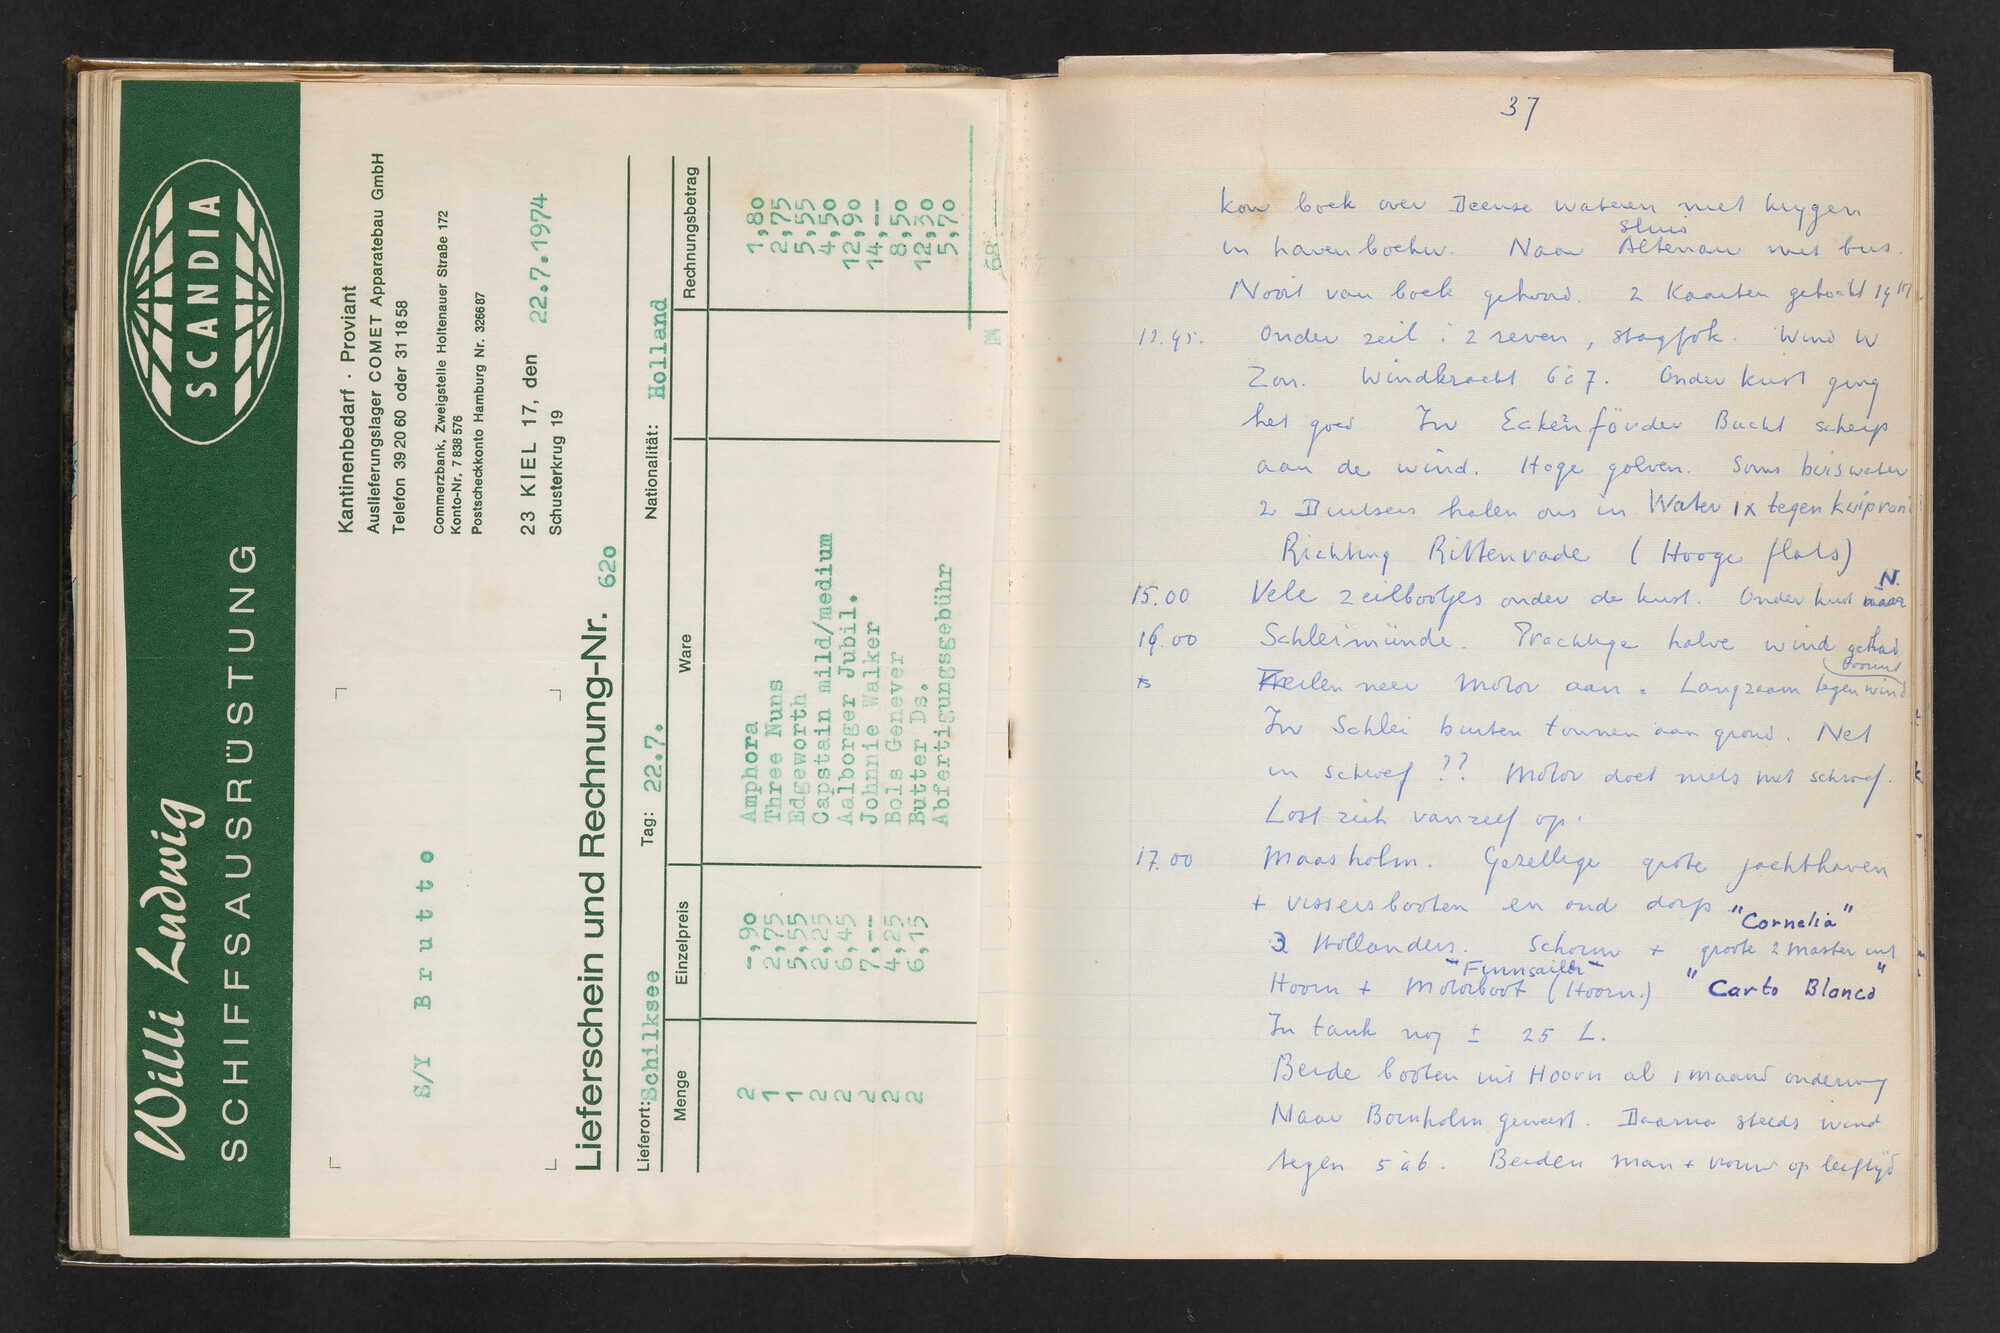 Willi Ludwig
SCHIFFSAUSRÜSTUNG
SCANDIA
Kantinenbedarf · Proviant
Auslieferungslager COMET Apparatebau GmbH
Telefon 39 20 60 oder 31 18 58
Commerzbank, Zweigstelle Holtenauer Straße 172
Konto-Nr. 7 838 576
Postscheckkonto Hamburg Nr. 3266 87
S/Y Brutto
23 KIEL 17, den 22.7.1974
Schusterkrug 19
Lieferschein und Rechnung-Nr. 620
Lieferort: Schilksee Tag: 22.7. Nationalität: Holland
Menge Einzelpreis Ware Rechnungsbetrag
2 -,90 Amphora 1,80
1 2,75 Three Nuns 2,75
1 5,55 Edgeworth 5,55
2 2,25 Capstain mild/medium 4,50
2 6,45 Aalborger Jubil. 12,90
2 7,-- Johnnie Walker 14,--
2 4,25 Bols Genever 8,50
2 6,15 Butter Ds. 12,30
Abfertigungsgebühr 5,70
68
37
kon boek over Deense wateren niet krygen
sluis
in haven boeken. Naar Altenau met bus.
Nooit van boek gehoord. 2 Kaarten gekocht
12.45. Onder zeil: 2 reven, stagfok. Wind W
Zon. Windkracht 6 à 7. Onder kust ging
het goed. In Eckenförder Bucht scherp
aan de wind. Hoge golven. Soms buiswater
2 Duitsers halen ons in. Water 1x tegen kuipraam
Richting (Hooge flats)
15.00 Vele zeilbootjes onder de kust. Onder kust naar N.
16.00 Schleimünde. Prachtige halve wind gehad
Zeilen neer Motor aan. Langzaam tegen wind
In Schlei buiten tonnen aan grond. Net
in schroef ?? Motor doet niets met schroef.
Lost zich vanzelf op.
17.00 Maasholm. Gezellige grote jachthaven
+ vissersboten en oud dorp
"Cornelia"
3 Hollanders. + groote 2 master uit
"Finnsailer"
Hoorn + Motorboot (Hoorn.) "Carto Blanco"
In tank nog ± 25 L.
Beide booten uit Hoorn al 1 maand onderweg
Naar Bornholm geweest. Daarna steeds wind
tegen 5 à 6. Beiden man + vrouw op leeftijd